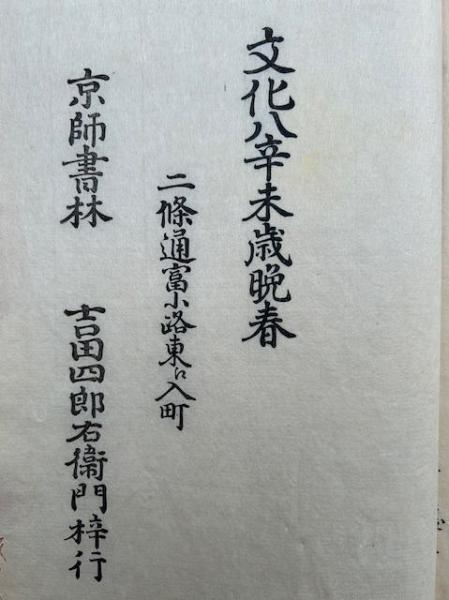 文化八辛未歳晩春
二條通富小路東ヘ入町
京師書林 吉田四郎右衞門梓行